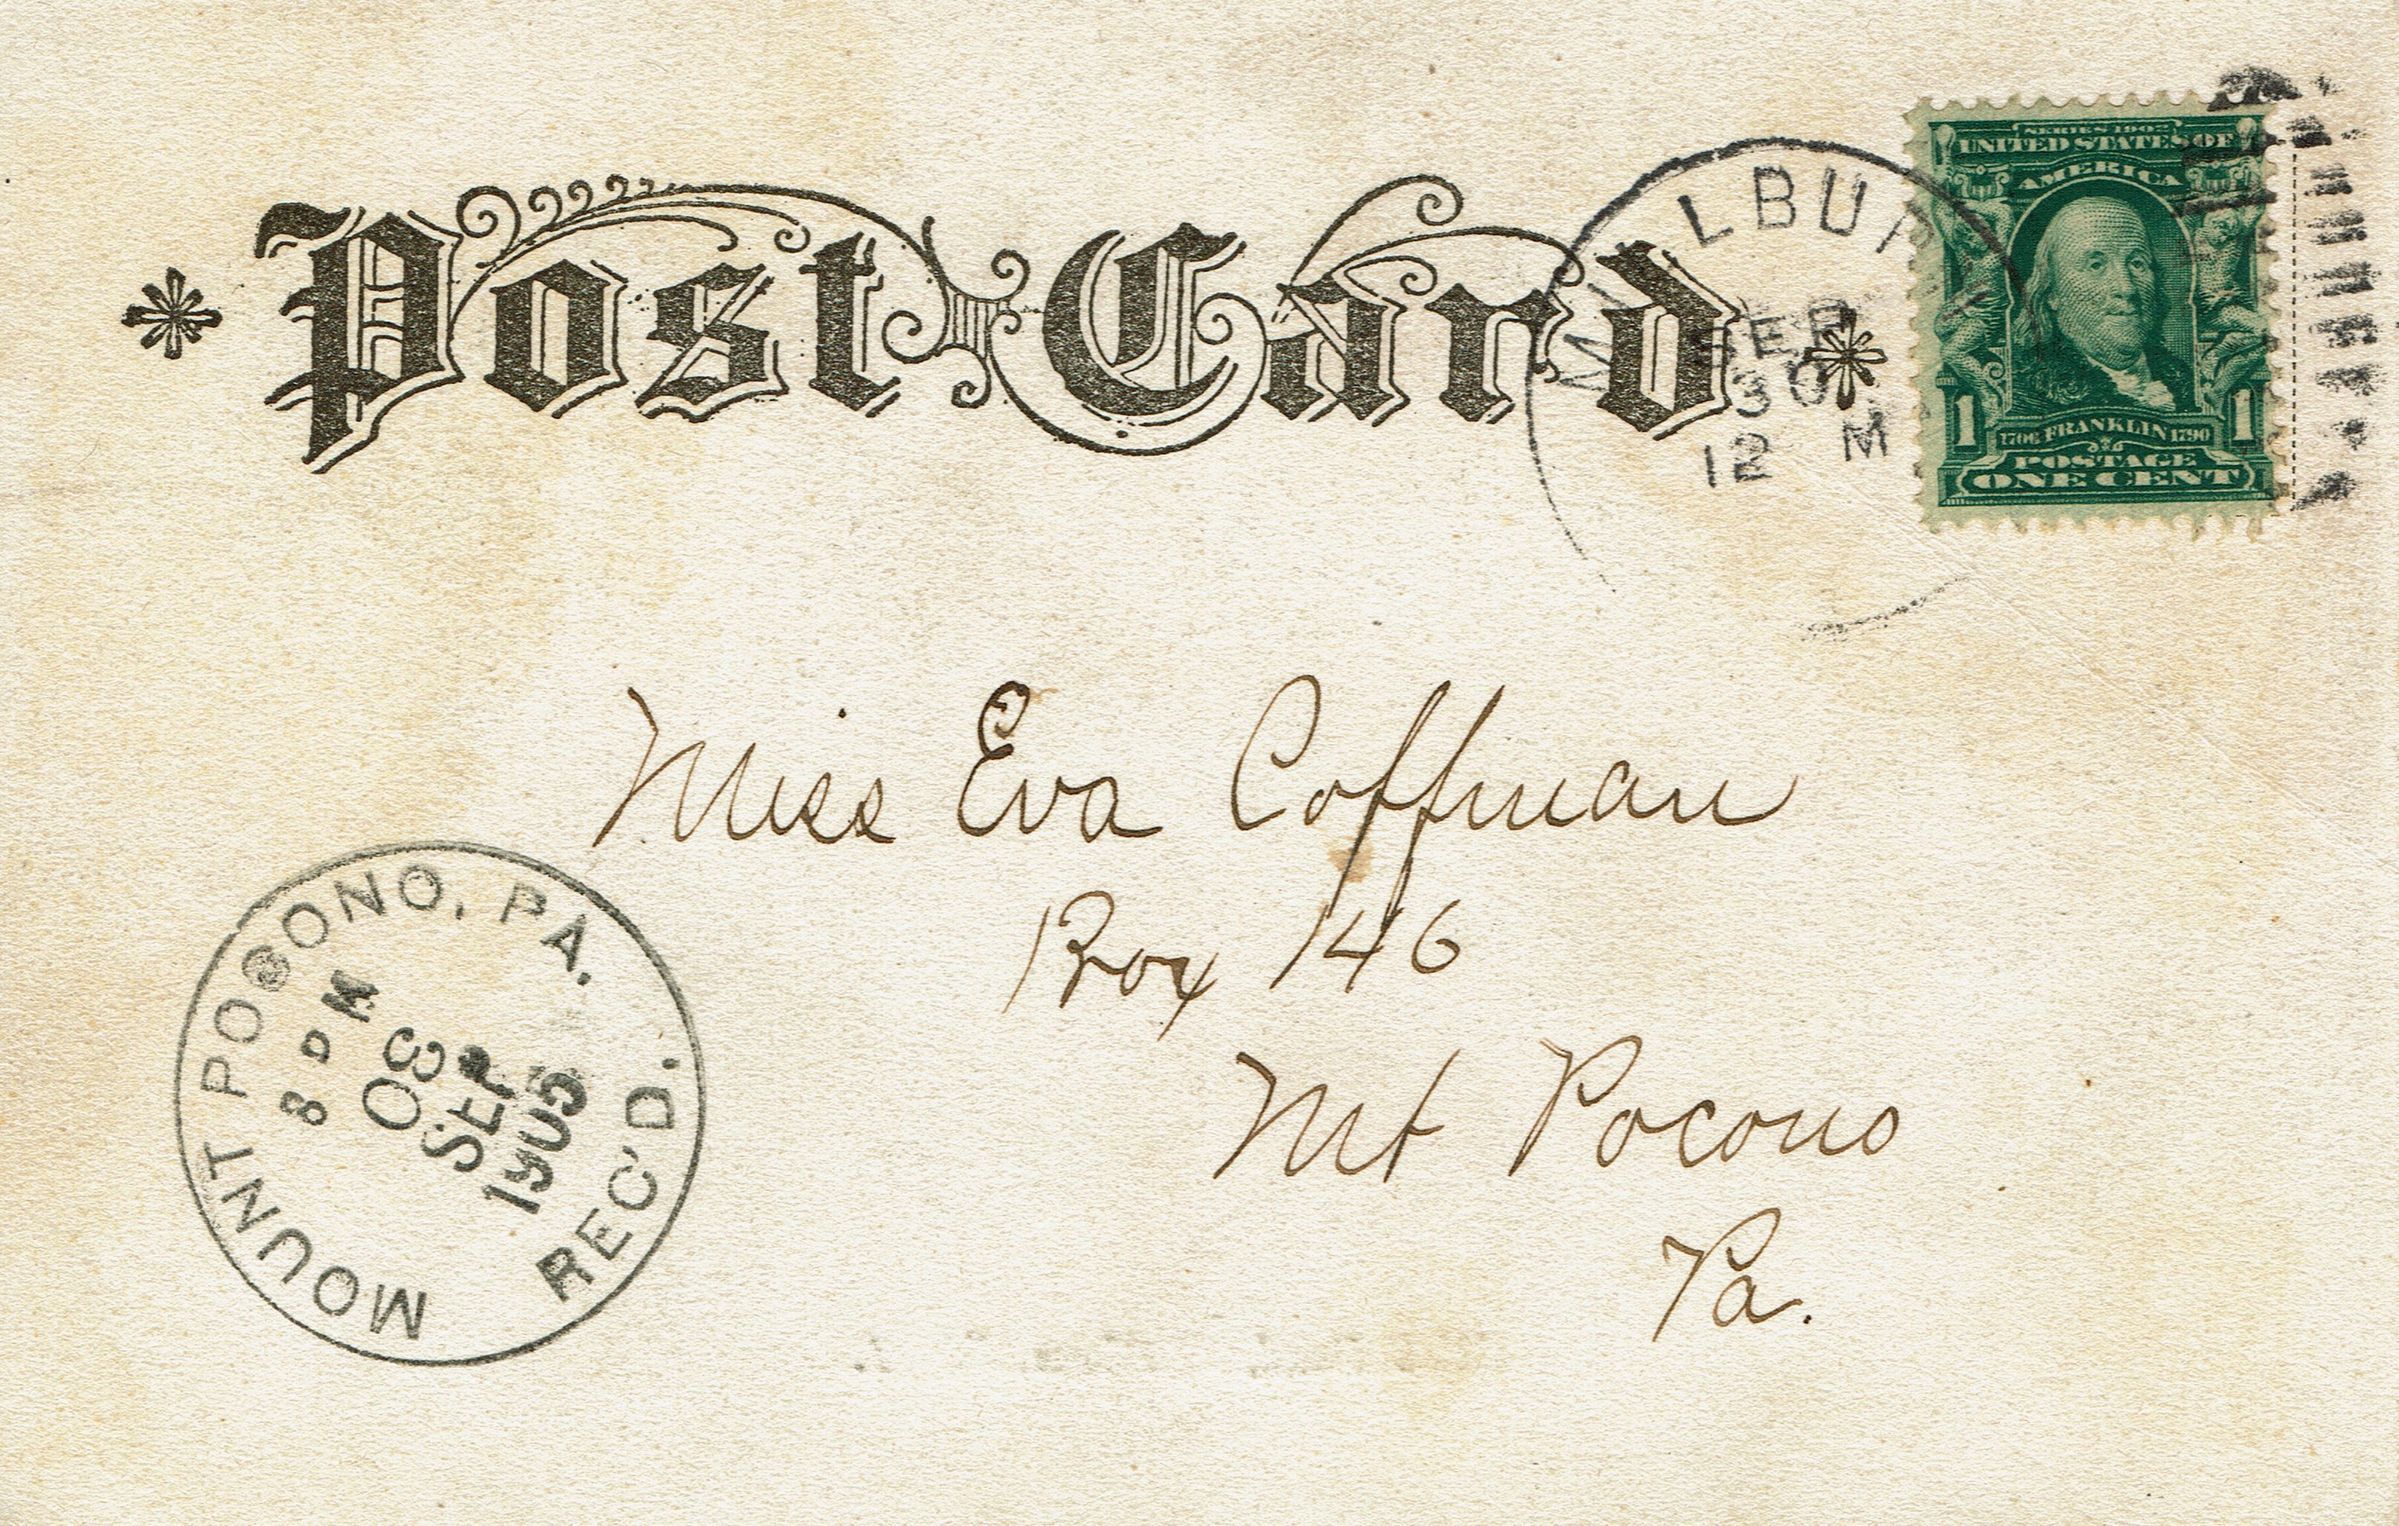 Post Card
SERIES 1902
UNITED STATES OF
AMERICA
1 1706 FRANKLIN 1790 1
POSTAGE
ONE CENT
SEP
30
12 M
Miss Eva Coffman
Box 146
Mt Pocono
Pa.
MOUNT POCONO, PA.
8 PM
30
SEP
1905
REC'D.